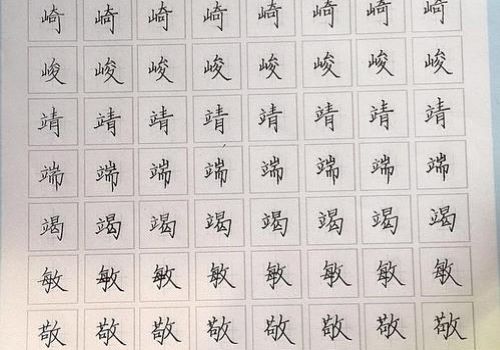 崎崎崎崎崎崎崎崎
峻峻峻峻峻峻峻峻
靖靖靖靖靖靖靖靖
端端端端端端端端
竭竭竭竭竭竭竭竭
敏敏敏敏敏敏敏敏
敬敬敬敬敬敬敬敬